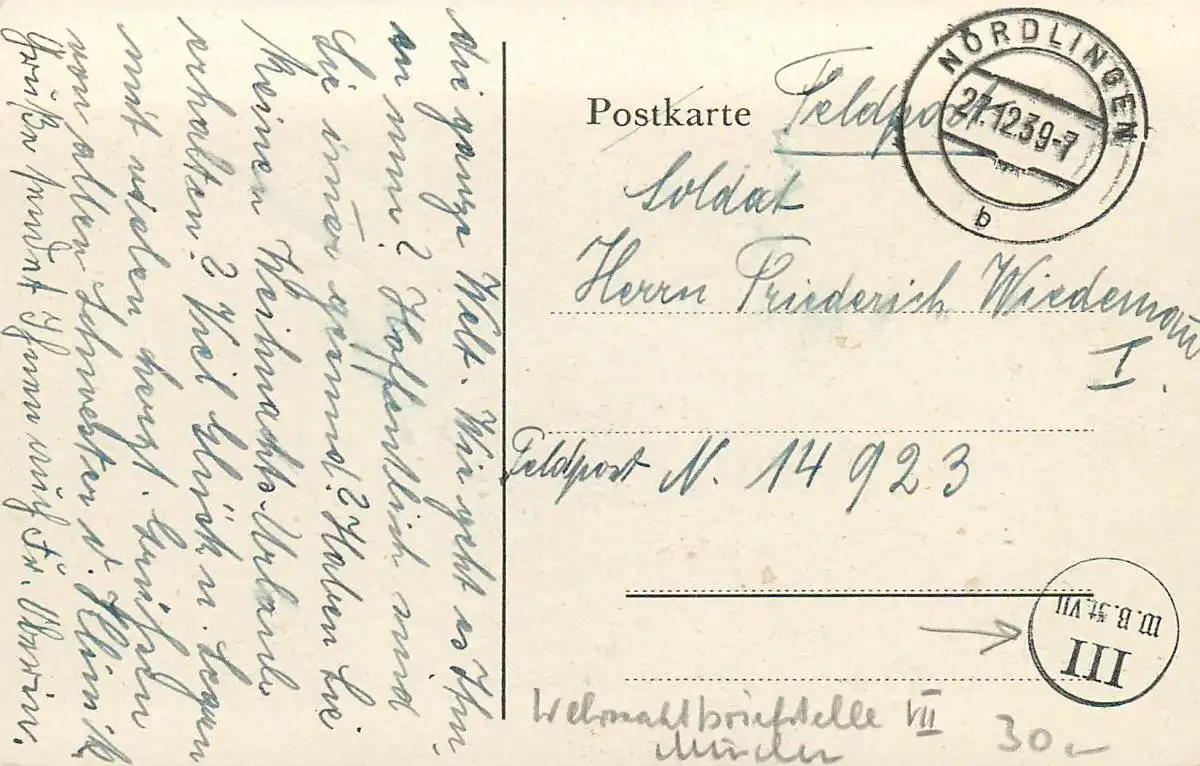 die ganze Welt. Wie geht es Ihn-
en nun? Hoffentlich sind
Sie immer gesund? Haben Sie
keinen Weihnachts-Urlaub
erhalten? Viel Glück u. Segen
mit vielen herzl. Grüßen
von allen Schwestern d. Klinik
Grüße sendet Ihnen auch Fr. Oberin.
Postkarte
Feldpost
NÖRDLINGEN
27.12.39-7
b
Soldat
Herrn Friederich Wiedemann
I.
Feldpost N. 14 923
III
W.B.St.VII
Wehrmachtbriefstelle VII
München
30 –